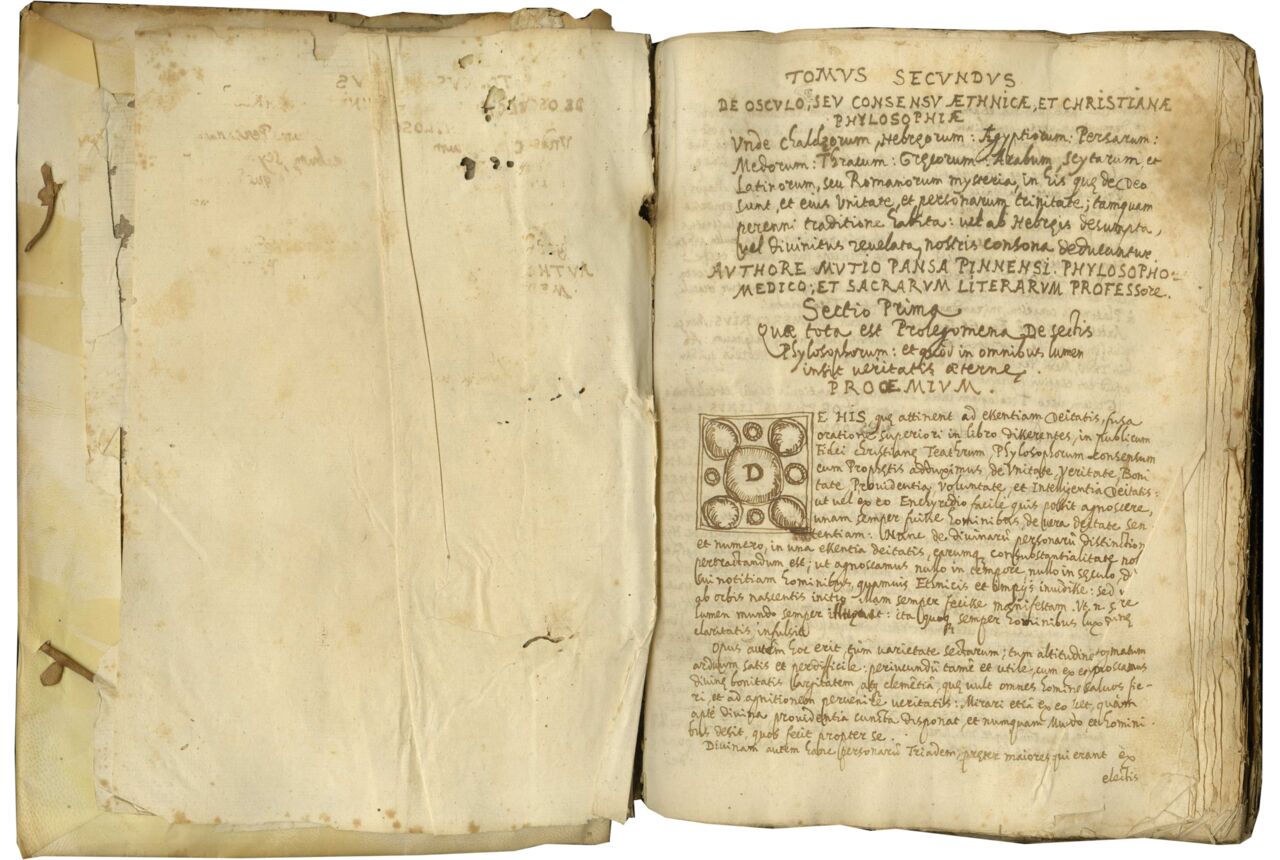 TOMVS SECVNDVS
DE OSCVLO, SEV CONSENSV ÆTHNICÆ, ET CHRISTIANÆ
PHYLOSOPHIÆ
Vnde Chaldęorum, Hebręorum: Ægyptiorum: Persarum:
Medorum: Thracum: Gręcorum: Arabum, Scytarum et
Latinorum, seu Romanorum mysteria, in his quę de Deo
sunt, et eius Vnitate, et personarum trinitate; tamquam
perenni traditione habita: vel ab Hebręis desumpta,
vel divinitus revelata, nostris consona deducuntur.
AVTHORE MVTIO PANSA PINNENSI. PHYLOSOPHO-
MEDICO, ET SACRARVM LITERARVM PROFESSore.
Sectio Prima
Quæ tota est Prolegomena De sectis
Phylosophorum: et quod in omnibus lumen
insit veritatis æternę.
PROŒMIVM.
DE HIS, quę attinent ad essentiam Deitatis, fusa
oratione superiori in libro disserentes, in publicum
fidei christianę Teathrum, Phylosophorum consensum
cum Prophetis adduximus, de Vnitate, Veritate, Boni
tate, Providentia, Voluntate, et Intelligentia Deitatis:
ut vel ex eo Enchyridio facile quis possit agnoscere,
unam semper fuisse hominibus, de vera deitate sen
tentiam: Nunc de divinarũ personarũ distinction
et numero, in una essentia deitatis, earumq. consubstantialitate no
pertractandum est; ut agnoscamus nullo in tempore nullo in sęculo,
sui notitiam hominibus, quamuis Ethnicis et impijs invidisse: sed
ab orbis nascentis initio illam semper fecisse manifestam. Vt. n.
lumen mundo semper: ita quoq semper hominibus lux
claritatis infulsit
Opus autem hoc erit, tum varietate sectarum; tum altitudine dogmatum
arduum satis et perdifficile: periucundũ tamẽ et utile, cum ex eo
divinę bonitatis largitatem, atq clemẽtiã, quę vult omnes homines salvos fie-
ri, et ad agnitionem pervenire veritatis: Mirari etiã ex eo licet, quàm
aptè divina providentia cuncta disponat, et numquam Mundo et homini
bus desit, quos fecit propter se.
Divinam autem hanc personarũ Triadem, pręter maiores qui erant ex
electis